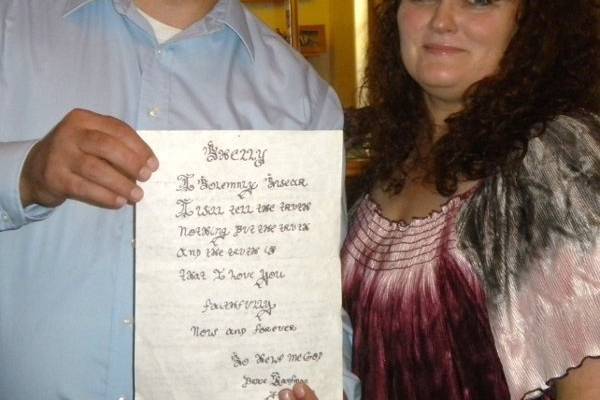 Shelly
I Solemnly Swear
I will tell the truth
Nothing But the truth
And the truth is
that I love you
faithfully
Now and forever
So Help Me God